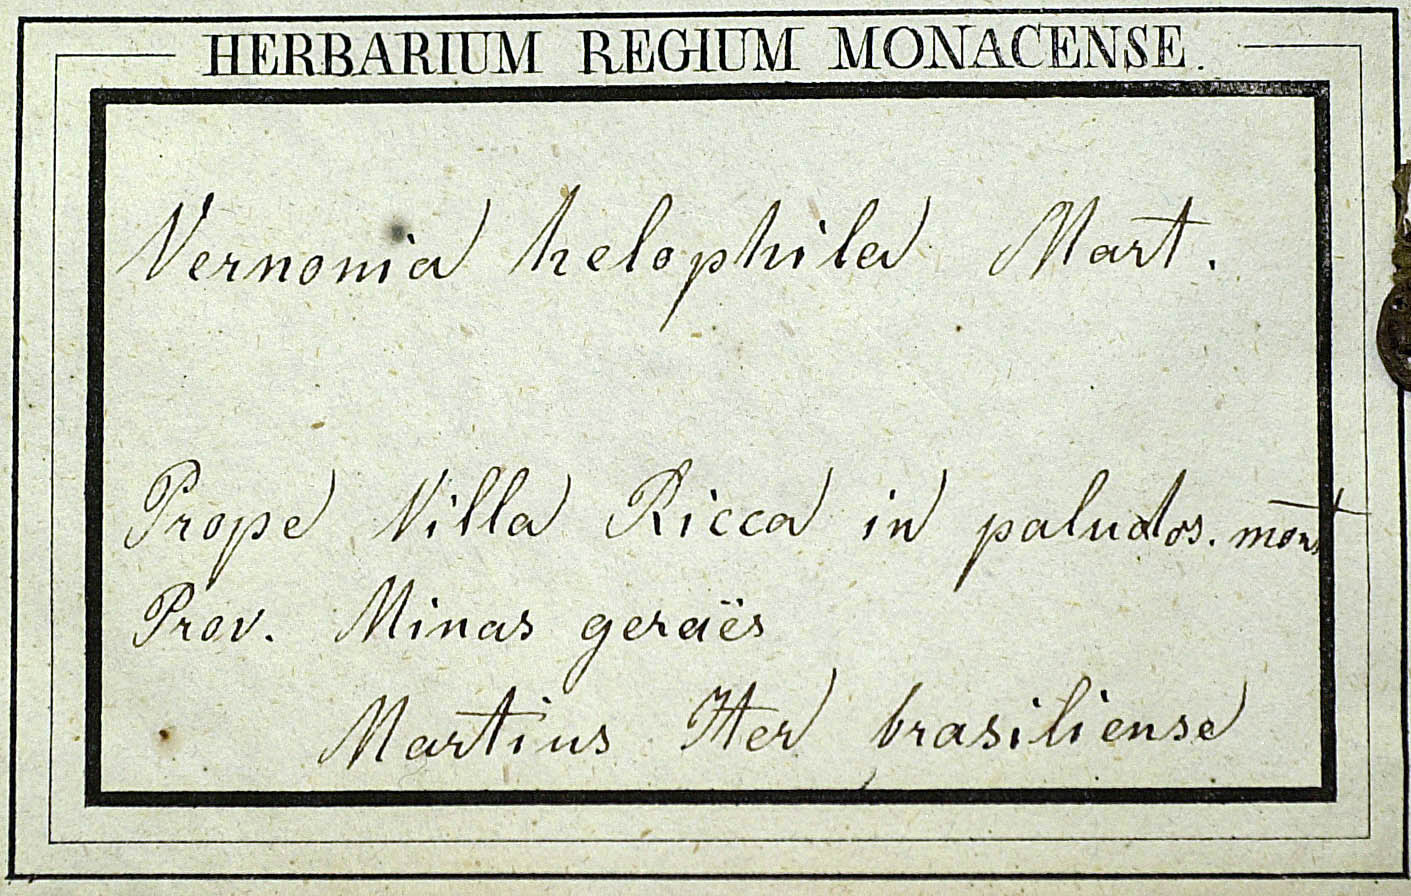 HERBARIUM REGIUM MONACENSE.
Vernonia helophila Mart.
Prope Villa Ricca in paludos. mont
Prov. Minas geraës
Martius Iter brasiliense